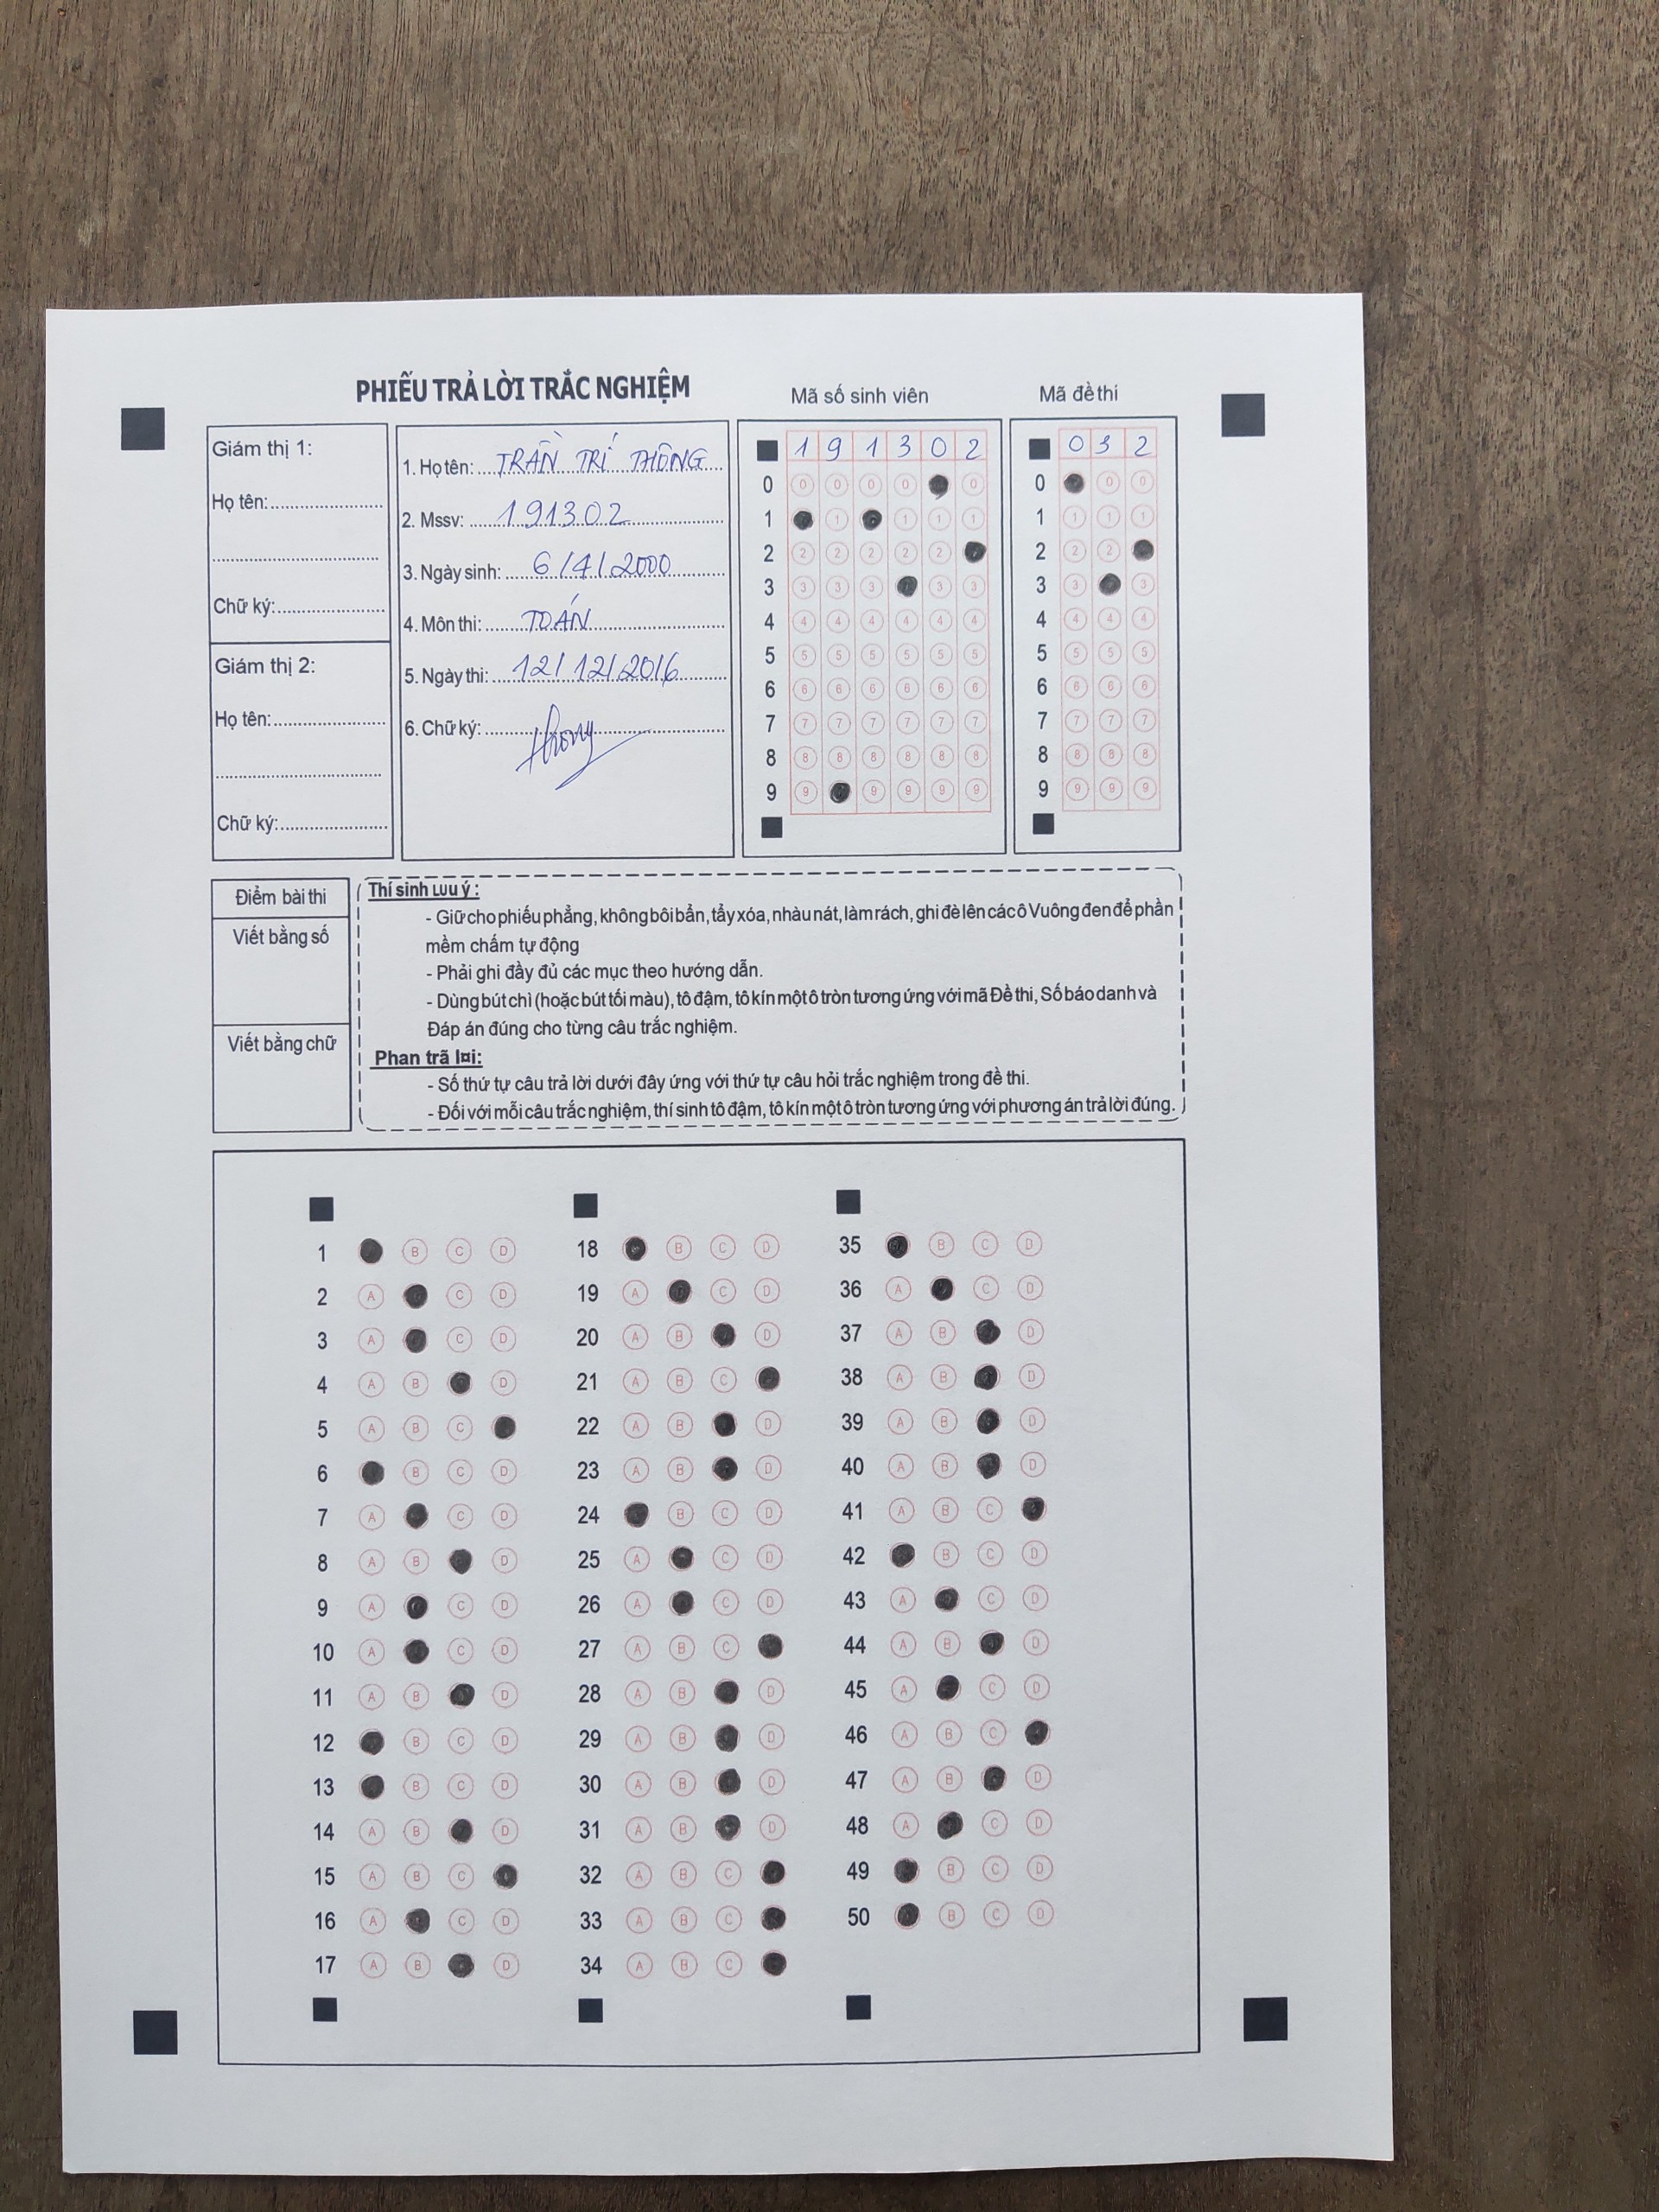 PHIẾU TRẢ LỜI TRẮC NGHIỆM
Mã số sinh viên
Mã đề thi
Giám thị 1:
Họ tên:
Chữ ký:
Giám thị 2:
Họ tên:
Chữ ký:
1. Họ tên: TRẦN TRÍ THÔNG
2. Mssv: 191302
3. Ngày sinh: 6/4/2000
4. Môn thi: TOÁN
5. Ngày thi: 12/12/2016
6. Chữ ký: thong
1 9 1 3 0 2
0 0 0 0 0 0
1 1 1 1
2 2 2 2 2 2
3 3 3 3 3 3
4 4 4 4 4 4 4
5 5 5 5 5 5 5
6 6 6 6 6 6 6
7 7 7 7 7 7 7
8 8 8 8 8 8 8
9 9 9 9 9 9
0 3 2
0 0 0
1 1 1 1
2 2 2
3 3 3
4 4 4 4
5 5 5 5
6 6 6 6
7 7 7 7
8 8 8 8
9 9 9 9
Điểm bài thi
Viết bằng số
Viết bằng chữ
Thí sinh Lưu ý :
- Giữ cho phiếu phẳng, không bôi bẩn, tẩy xóa, nhàu nát, làm rách, ghi đè lên các ô Vuông đen để phần
mềm chấm tự động
- Phải ghi đầy đủ các mục theo hướng dẫn.
- Dùng bút chì (hoặc bút tối màu), tô đậm, tô kín một ô tròn tương ứng với mã Đề thi, Số báo danh và
Đáp án đúng cho từng câu trắc nghiệm.
Phan trã l¤i:
- Số thứ tự câu trả lời dưới đây ứng với thứ tự câu hỏi trắc nghiệm trong đề thi.
- Đối với mỗi câu trắc nghiệm, thí sinh tô đậm, tô kín một ô tròn tương ứng với phương án trả lời đúng.
1 B C D
2 A C D
3 A C D
4 A B D
5 A B C
6 B C D
7 A C D
8 A B D
9 A C D
10 A C D
11 A B D
12 B C D
13 B C D
14 A B D
15 A B C
16 A C D
17 A B D
18 B C D
19 A C D
20 A B D
21 A B C
22 A B D
23 A B D
24 B C D
25 A C D
26 A C D
27 A B C
28 A B D
29 A B D
30 A B D
31 A B D
32 A B C
33 A B C
34 A B C
35 B C D
36 A C D
37 A B D
38 A B D
39 A B D
40 A B D
41 A B C
42 B C D
43 A C D
44 A B D
45 A C D
46 A B C
47 A B D
48 A C D
49 B C D
50 B C D